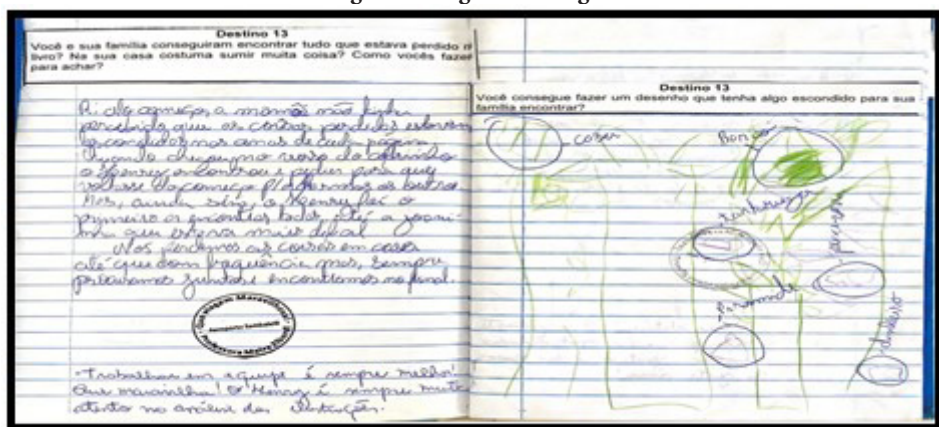 Destino 13
Você e sua família conseguiram encontrar tudo que estava perdido n
livro? Na sua casa costuma sumir muita coisa? Como vocês fazem
para achar?
R: a mamãe não tinha
percebido que as coisas perdidas estavam
escondidas nas cenas de cada página
Quando chegamos no verso da
o Henry encontrou e pediu para que
voltasse do começo p/ as outras
Mas, ainda sim, o Henry foi o
primeiro a encontrar todas, até a joani-
nha que estava mais difícil
Nós perdemos as coisas em casa
até que com frequência mas, sempre
procuramos juntos e encontramos no final.
Boa viagem Maravilhosa!
Trabalhar em equipe é sempre melhor!
Que maravilha! O Henry é sempre muito
atento na análise das ilustrações.
Destino 13
Você consegue fazer um desenho que tenha algo escondido para sua
família encontrar?
Tartaruga
Pirâmide
dinheiro